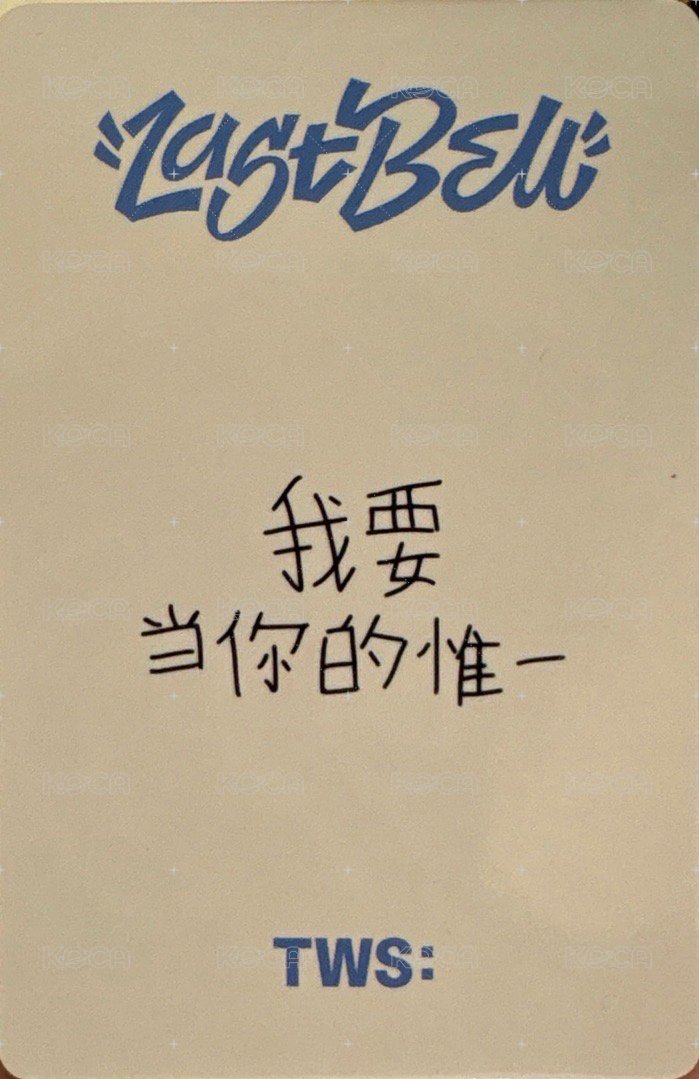 Last Bell
我要
当你的惟一
TWS:
KOCA